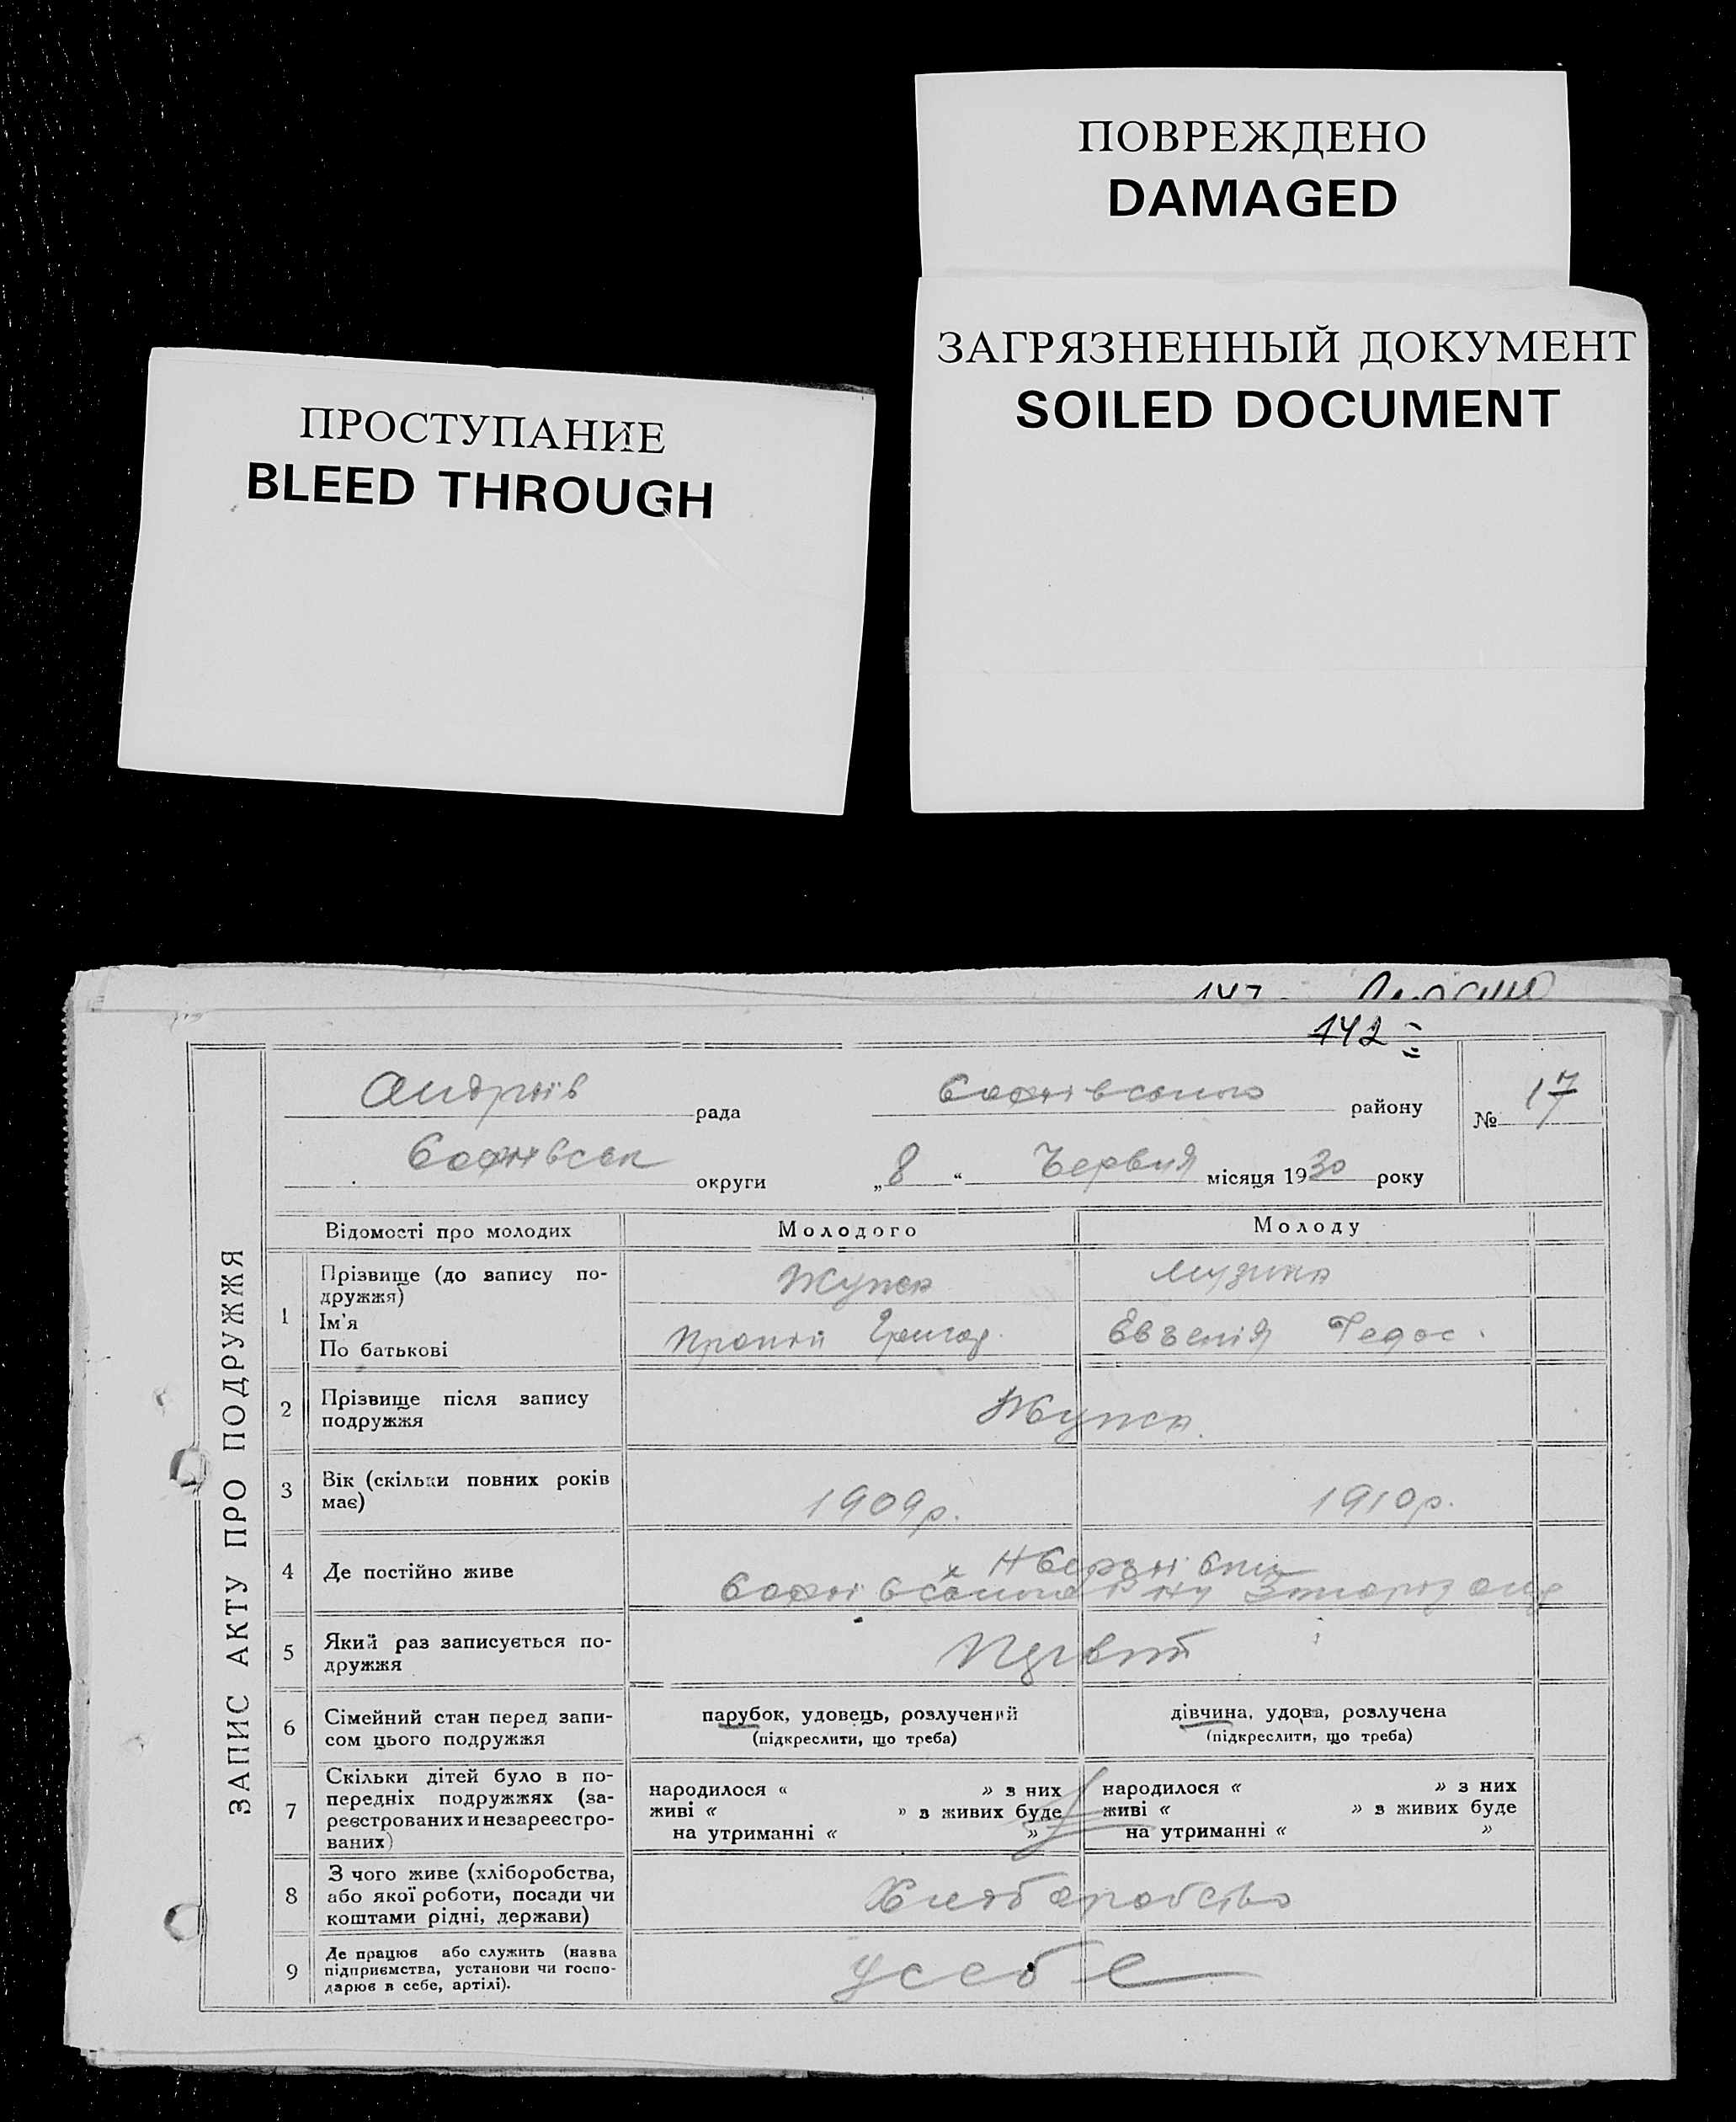 ПОВРЕЖДЕНО
DAMAGED
ЗАГРЯЗНЕННЫЙ ДОКУМЕНТ
SOILED DOCUMENT
ПРОСТУПАНИЕ
BLEED THROUGH
142
ЗАПИС АКТУ ПРО ПОДРУЖЖЯ
рада
району
№ 17
округи „8“ Червня місяця 1930 року
Відомості про молодих Молодого Молоду
1 Прізвище (до запису по-
дружжя)
Ім'я
По батькові
Музика
Григор. Євгенія Федос.
2 Прізвище після запису
подружжя
3 Вік (скільки повних років
має)
1909р. 1910р.
4 Де постійно живе
5 Який раз записується по-
дружжя
Первий
6 Сімейний стан перед запи-
сом цього подружжя
парубок, удовець, розлучений
(підкреслити, що треба)
дівчина, удова, розлучена
(підкреслити, що треба)
7 Скільки дітей було в по-
передніх подружжях (за-
реєстрованих и незареєстро-
ваних)
народилося « » з них
живі « » з живих буде
на утриманні « »
народилося « » з них
живі « » з живих буде
на утриманні « »
8 З чого живе (хліборобства,
або якої роботи, посади чи
коштами рідні, держави)
9 Де працює або служить (назва
підприємства, установи чи госпо-
дарює в себе, артілі).
усебе